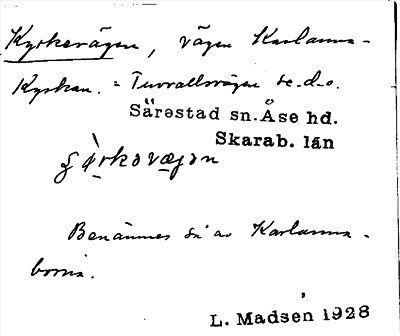 Kyrkevägen, vägen Karlanna-
Kyrkan. = Tuvvallsvägen se.d.o.
Särestad sn. Åse hd.
Skarab. län
Benämnes så av Karlanna-
borna.
L. Madsén 1928